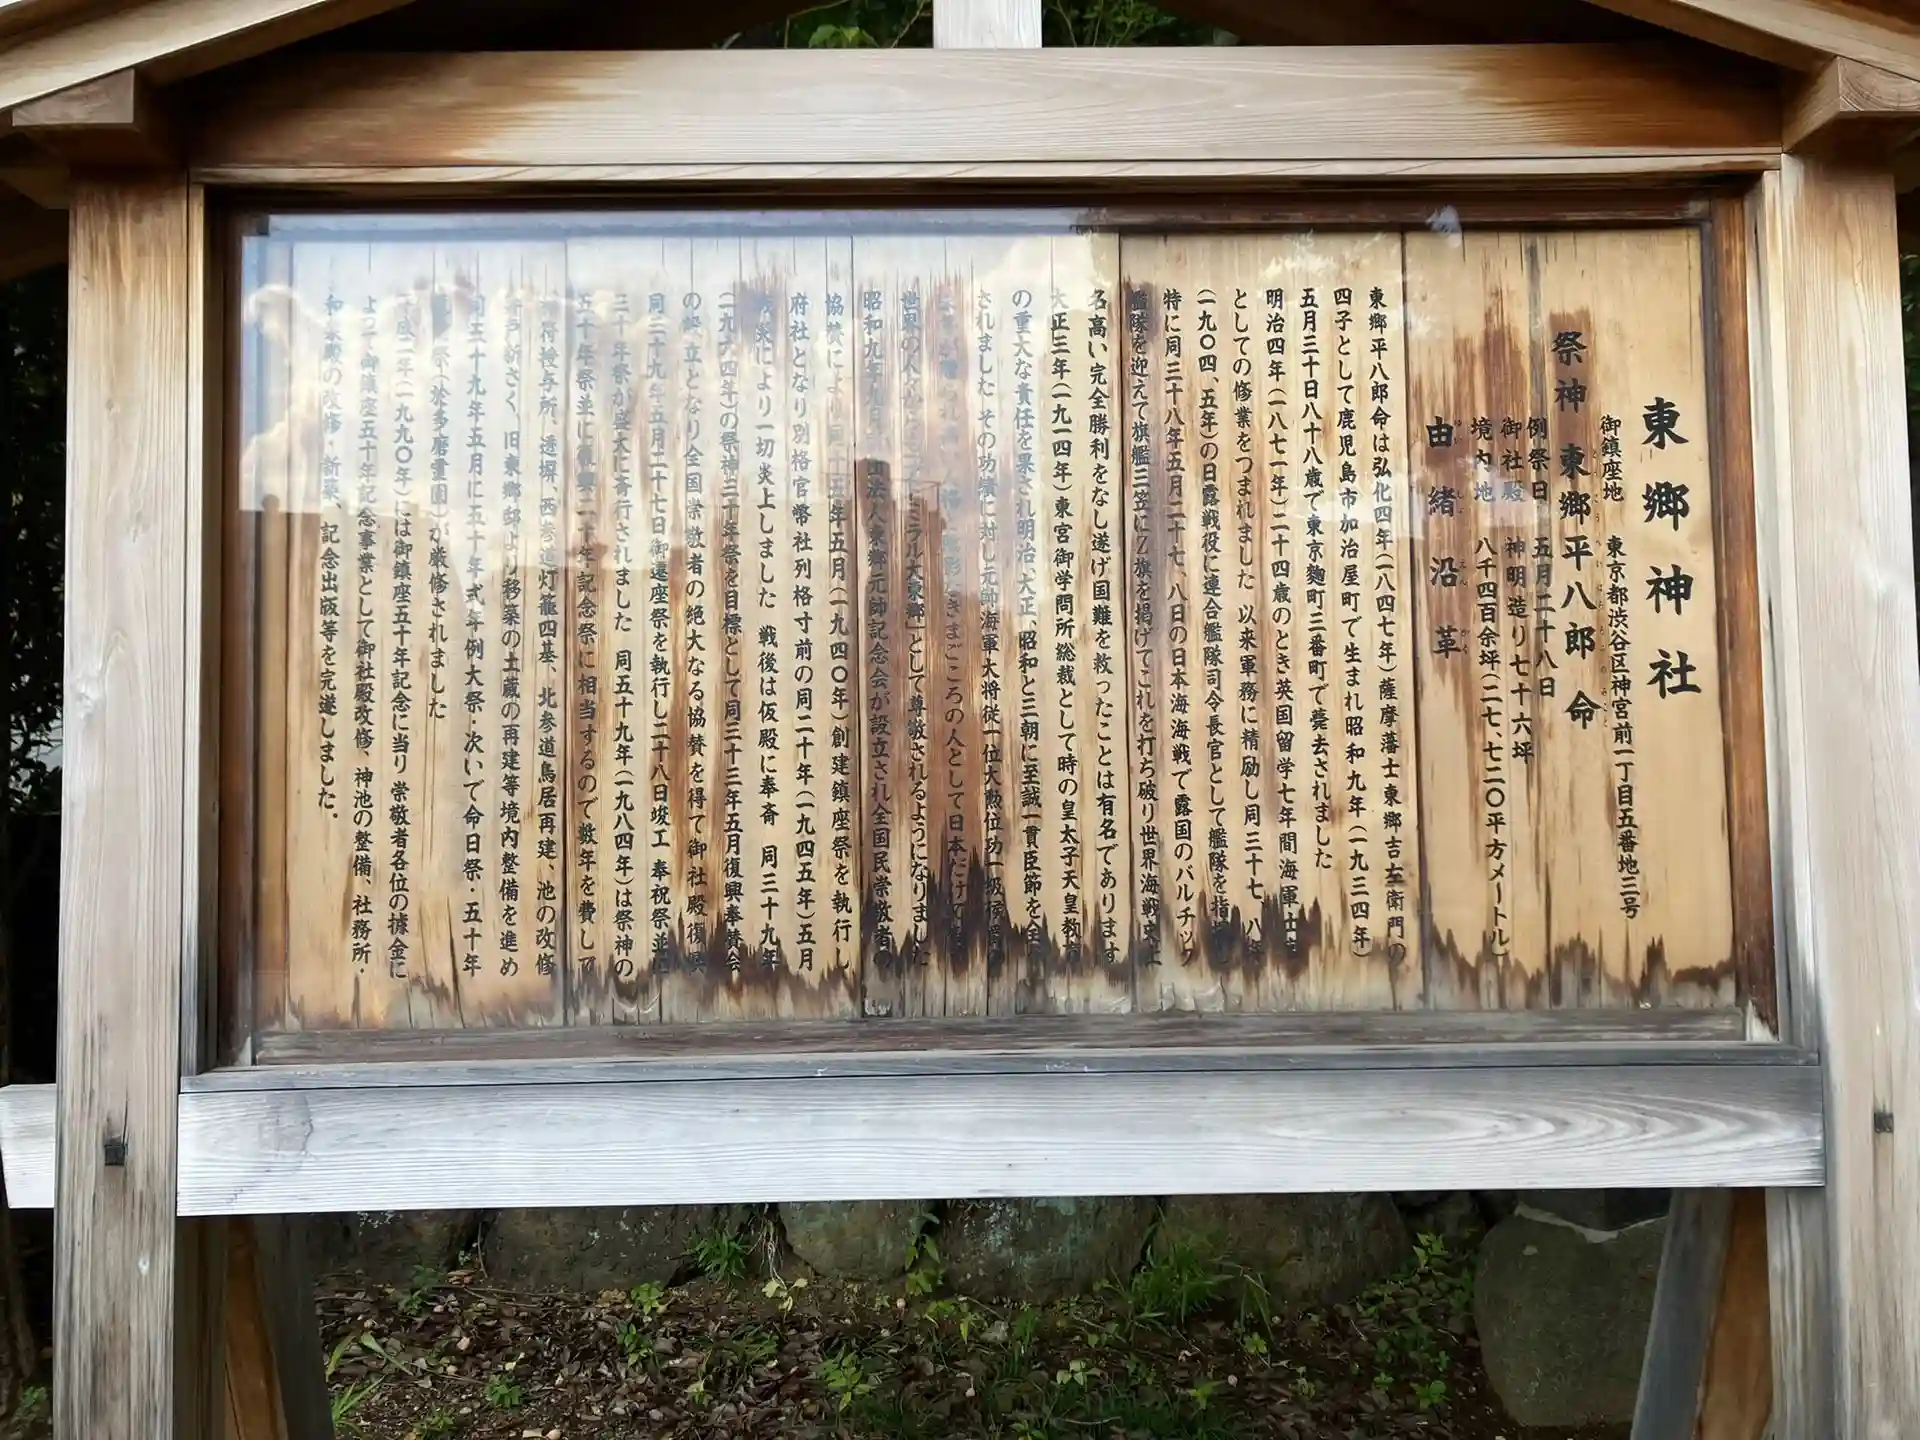 東郷神社
御鎮座地 東京都渋谷区神宮前一丁目五番地三号
祭神 東郷平八郎命
例祭日 五月二十八日
御社殿 神明造り七十六坪
境内地 八千四百余坪(二七、七二〇平方メートル)
由緒沿革
東郷平八郎命は弘化四年(一八四七年)薩摩藩士東郷吉左衛門の
四子として鹿児島市加治屋町で生まれ昭和九年(一九三四年)
五月三十日八十八歳で東京麴町三番町で薨去されました
明治四年(一八七一年)二十四歳のとき英国留学七年間海軍士官
としての修業をつまれました 以来軍務に精励し同三十七、八年
(一九〇四、五年)の日露戦役に連合艦隊司令長官として艦隊を指揮し
特に同三十八年五月二十七、八日の日本海海戦で露国のバルチック
艦隊を迎えて旗艦三笠にZ旗を掲げてこれを打ち破り世界海戦史上
名高い完全勝利をなし遂げ国難を救ったことは有名であります
大正三年(一九一四年)東宮御学問所総裁として時の皇太子天皇教育
の重大な責任を果され明治、大正、昭和と三朝に至誠一貫臣節を全う
されました その功績に対し元帥海軍大将従一位大勲位功一級侯爵の
まごころの人として日本だけで
世界の人々から ミラル大東郷」として尊敬されるようになりました
昭和九年九月 財団法人東郷元帥記念会が設立され全国民崇敬者の
協賛により同十五年五月(一九四〇年)創建鎮座祭を執行し
府社となり別格官幣社列格寸前の同二十年(一九四五年)五月
戦災により一切炎上しました 戦後は仮殿に奉斎 同三十九年
(一九六四年)の祭神三十年祭を目標として同三十三年五月復興奉賛会
の設立となり全国崇敬者の絶大なる協賛を得て御社殿復興
同三十九年五月二十七日御遷座祭を執行し二十八日竣工奉祝祭並に
三十年祭が盛大に斎行されました 同五十九年(一九八四年)は祭神の
五十年祭並に復興二十年記念祭に相当するので数年を費して
神符授与所、透塀、西参道灯籠四基、北参道鳥居再建、池の改修
井戸新さく、旧東郷邸より移築の土蔵の再建等境内整備を進め
同五十九年五月に五十年式年例大祭・次いで命日祭・五十年
祭(於多磨霊園)が厳修されました
二年(一九九〇年)には御鎮座五十年記念に当り崇敬者各位の據金に
よって御鎮座五十年記念事業として御社殿改修、神池の整備、社務所・
和楽殿の改修・新築、記念出版等を完遂しました。